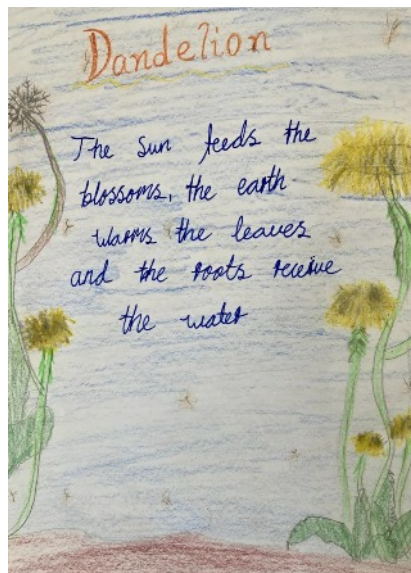 Dandelion
The Sun feeds the
blossoms, the earth
warms the leaves
and the roots receive
the water